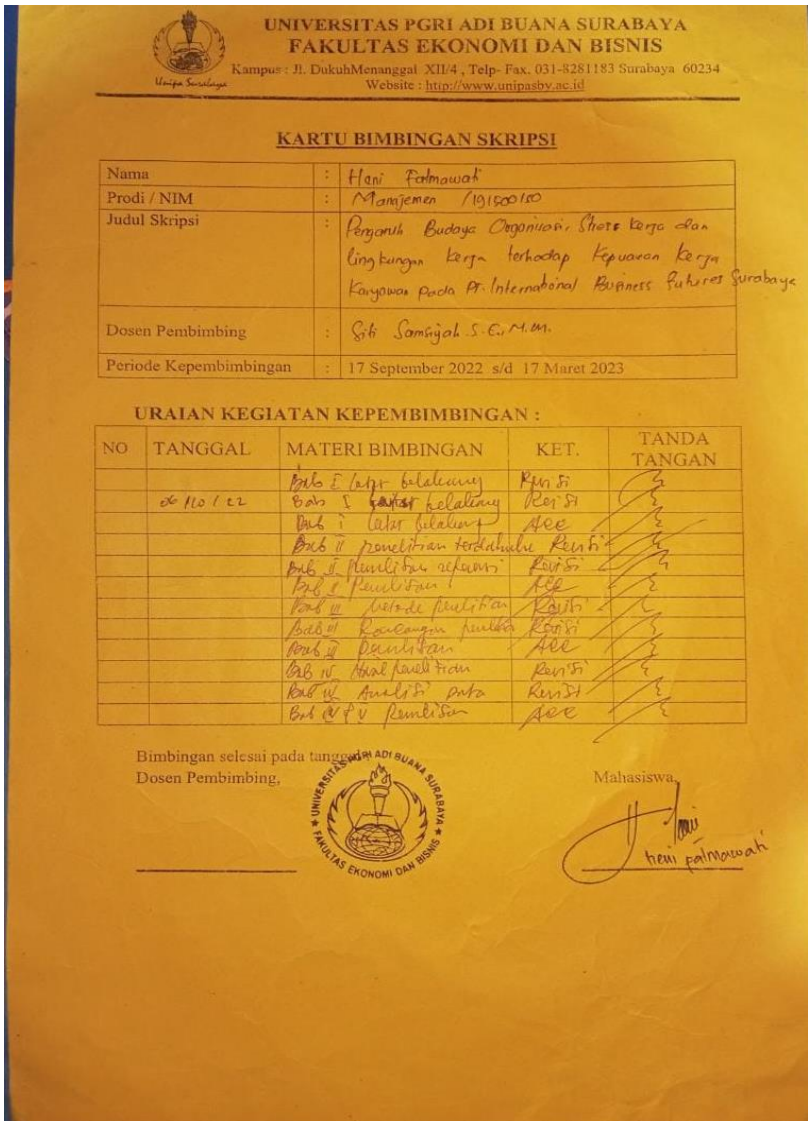 UNIVERSITAS PGRI ADI BUANA SURABAYA
FAKULTAS EKONOMI DAN BISNIS
Kampus : Jl. DukuhMenanggal XII/4 , Telp- Fax. 031-8281183 Surabaya 60234
Website : http://www.unipasby.ac.id
Unipa Surabaya
KARTU BIMBINGAN SKRIPSI
Nama : Heni Fatmawati
Prodi / NIM : Manajemen /191500150
Judul Skripsi : Pengaruh Budaya Organisasi, Stress kerja dan
lingkungan kerja terhadap Kepuasan Kerja
Karyawan pada PT. International Business Futures Surabaya
Dosen Pembimbing : Siti Samsiyah S.E., M.M.
Periode Kepembimbingan : 17 September 2022 s/d 17 Maret 2023
URAIAN KEGIATAN KEPEMBIMBINGAN :
NO TANGGAL MATERI BIMBINGAN KET. TANDA TANGAN
Bab I latar belakang Revisi
06/10/22 Bab I latar belakang Revisi
Bab I latar belakang Acc
Bab II penelitian terdahulu Revisi
Bab II penulisan referensi Revisi
Bab II Penulisan Acc
Bab III Metode penelitian Revisi
Bab III Rancangan penelitian Revisi
Bab III penulisan Acc
Bab IV Hasil penelitian Revisi
Bab IV Analisi Data Revisi
Bab IV & V Penulisan Acc
Bimbingan selesai pada tanggal
Dosen Pembimbing, Mahasiswa,
UNIVERSITAS PGRI ADI BUANA SURABAYA
FAKULTAS EKONOMI DAN BISNIS
Heni Fatmawati